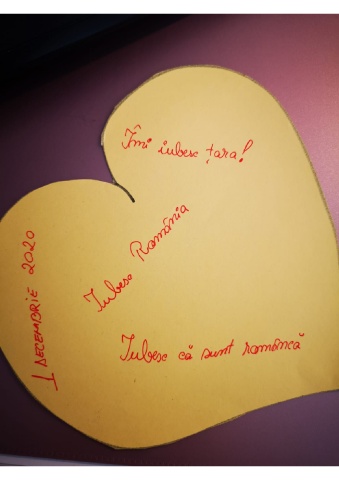 Îmi iubesc țara!
Iubesc România
1 DECEMBRIE 2020
Iubesc că sunt româncă